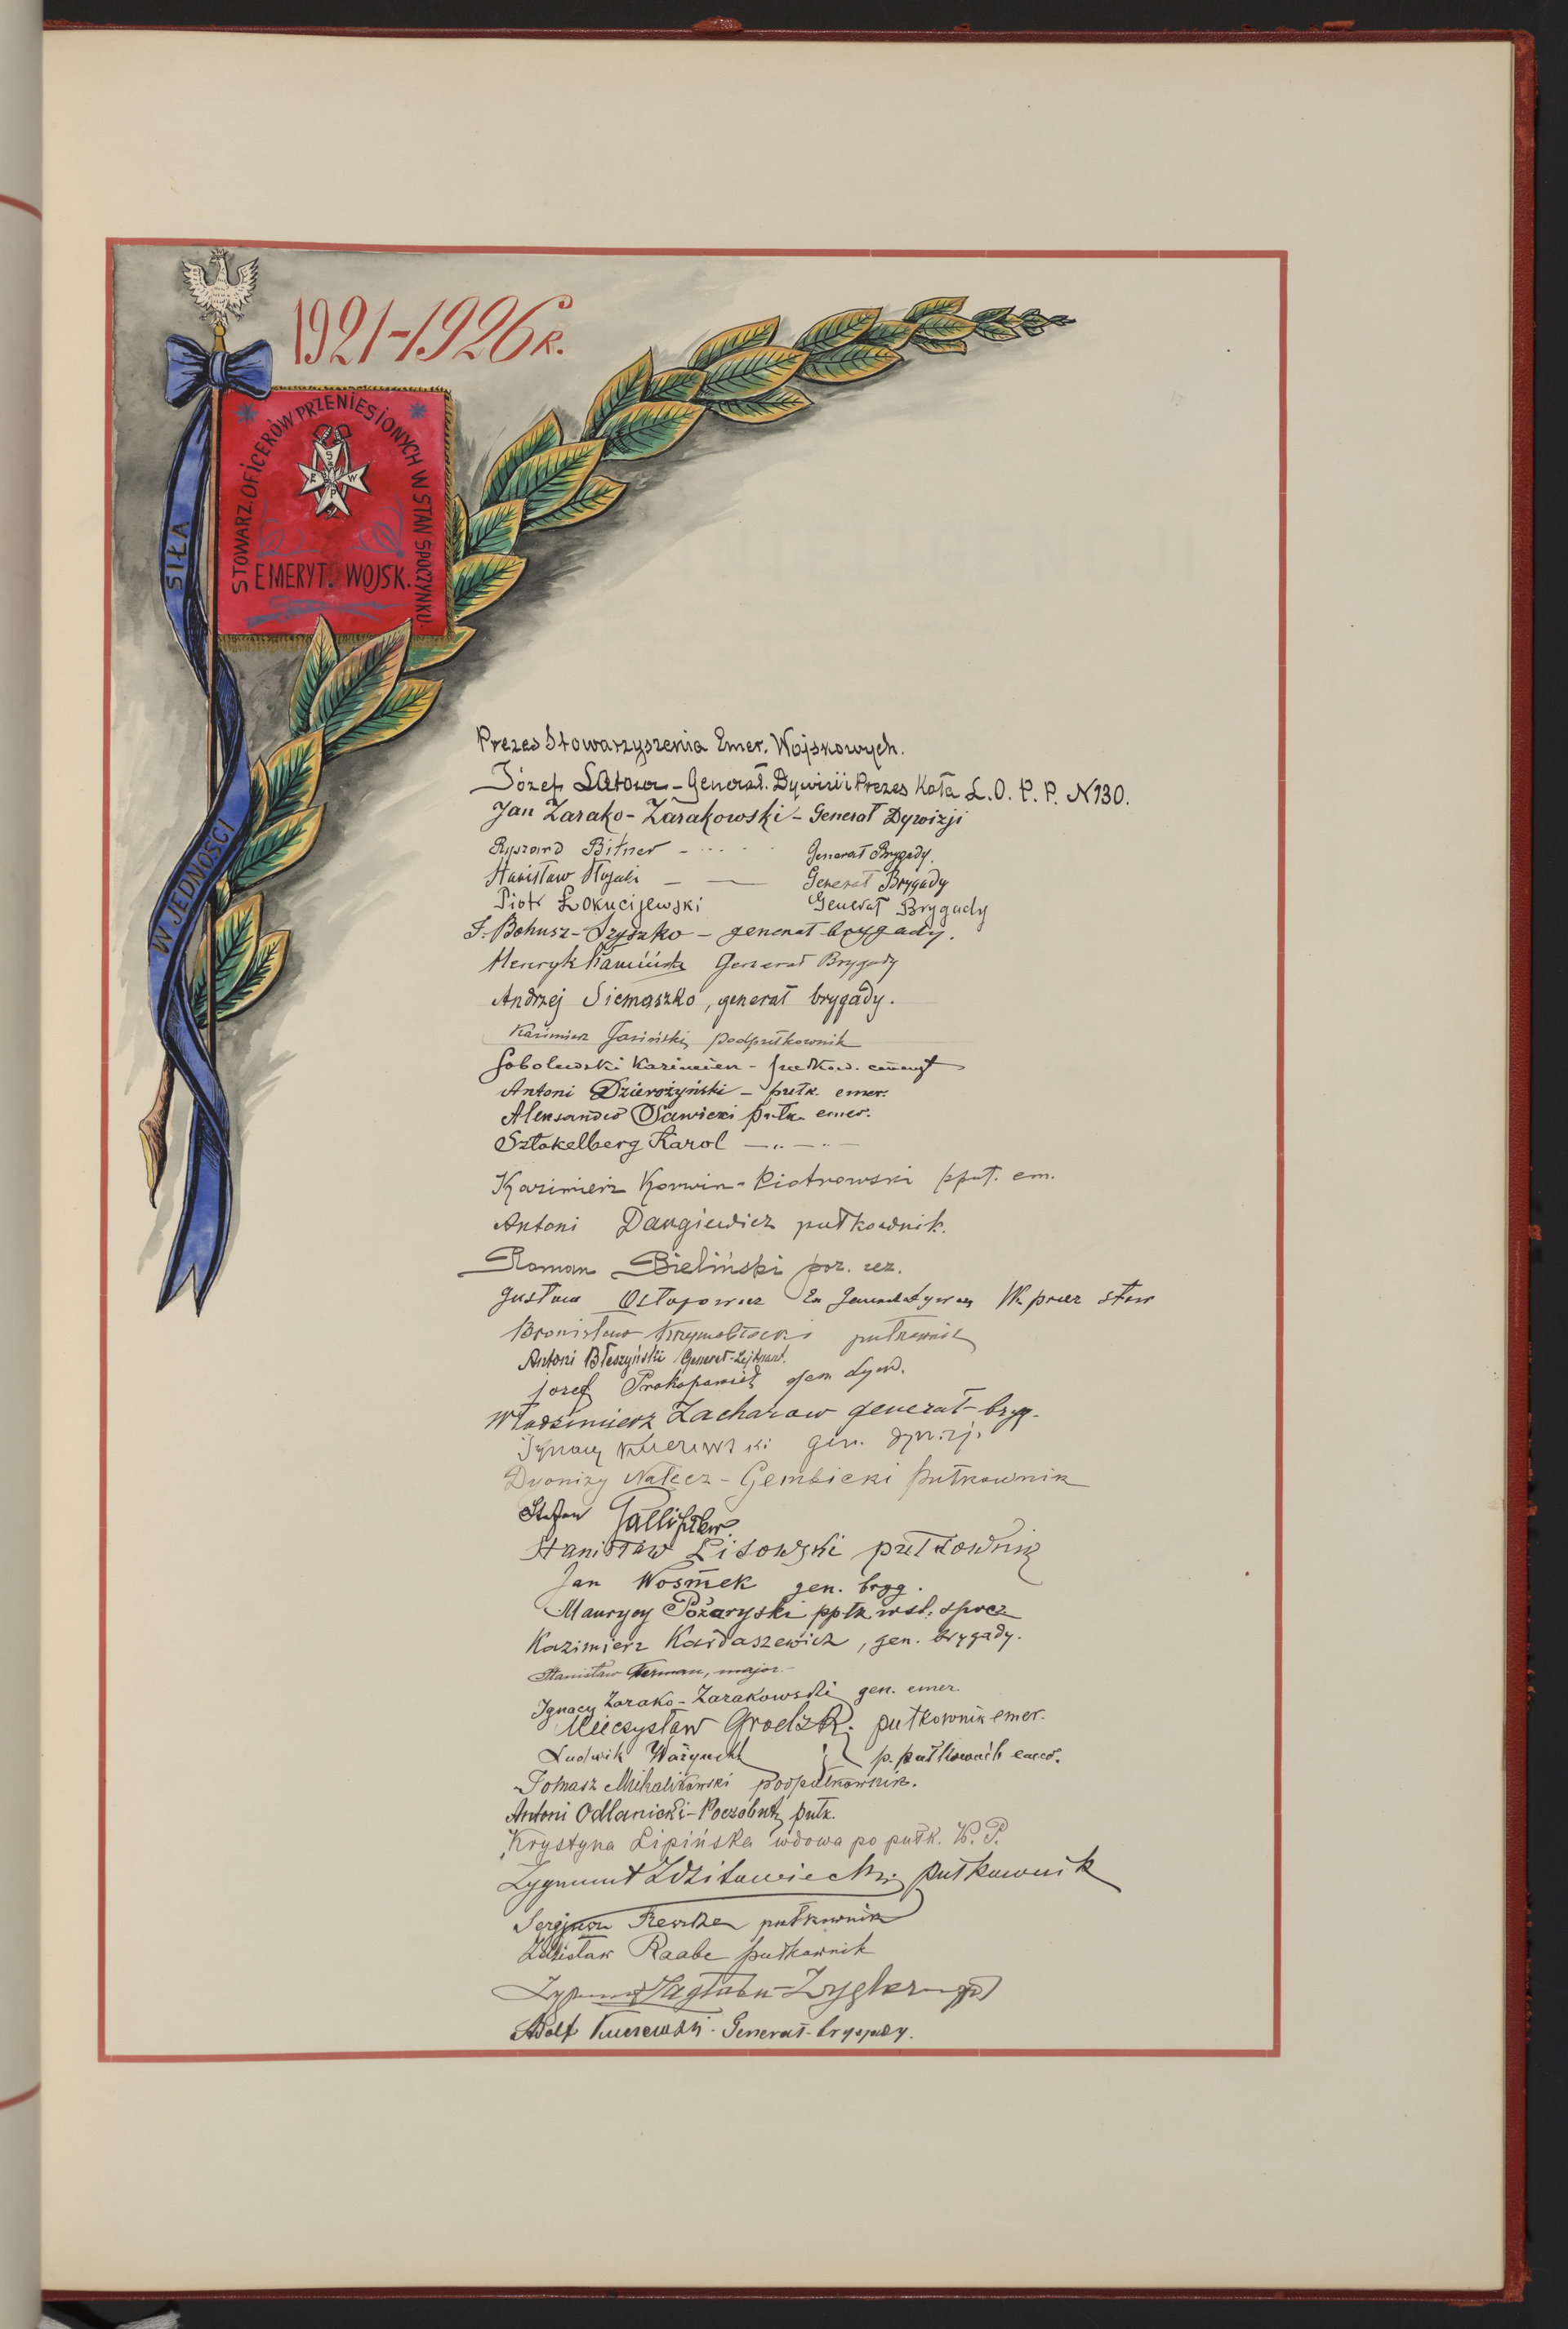 1921-1926 R.
STOWARZ. OFICERÓW PRZENIESIONYCH W STAN SPOCZYNKU.
S
E W
P
EMERYT. WOJSK.
SIŁA
W JEDNOŚCI
Prezes Stowarzyszenia Emer. Wojskowych.
Józef - Generał. Dywizii Prezes Koła L.O.P.P. N130.
Jan Żarako-Żarakowski - Generał Dywizji
Ryszard Bitner - Generał Brygady.
Stanisław — — Generał Brygady
Piotr Łokucijewski Generał Brygady
Bohusz-Szyszko - generał brygady.
Henryk Kamiński Generał Brygady
Andrzej Siemaszko, generał brygady.
Kazimierz Jasiński, podpułkownik
Sobolewski Kazimierz -
Antoni Dzierożyński - pułk. emer.
Aleksander Sawicki pułk. emer.
Sztakelberg Karol — „ — „ —
Kazimierz Korwin-Piotrowski ppuł. em.
Antoni Dawgiewicz pułkownik.
Roman Bieliński por. rez.
Gustaw Ostapowicz
Bronisław pułkownik
Antoni Błeszyński Generał-Lejtnant.
Józef Prokopowicz
Włodzimierz Zacharow generał-bryg.
Ignacy gen. dywizji
Dyonizy Nałęcz-Gembicki pułkownik
Stefan Galli
Stanisław Lisowski pułkownik
Jan Wosmek gen. bryg.
Maurycy Pożaryski ppłk. w st. spocz
Kazimierz Kardaszewicz, gen. brygady.
Stanisław Herman, major.
Ignacy Żarako-Żarakowski gen. emer.
Mieczysław Grodzki pułkownik emer.
Ludwik p. pułkownik emer.
Tomasz Mihalikowski podpułkownik.
Antoni Odlanicki-Poczobutt, pułk.
Krystyna Lipińska wdowa po pułk. W.P.
Zygmunt Zdzitowiecki, pułkownik
Sergjusz pułkownik
Zdzisław Raabe pułkownik
Zygmunt Zagłoba-Zygler
Adolf Kuczewski - Generał-brygady.